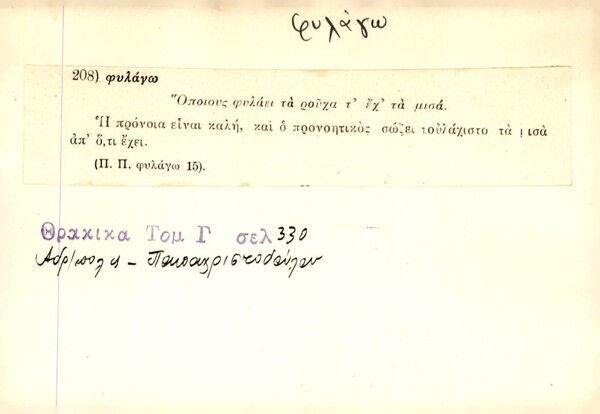 φυλάγω
208) φυλάγω
Ὅποιους φυλάει τὰ ροῦχα τ' ἔχ' τὰ μισά.
Ἡ πρόνοια εἶναι καλή, καὶ ὁ προνοητικὸς σώζει τοὐλάχιστο τὰ μισὰ
ἀπ' ὅ,τι ἔχει.
(Π. Π. φυλάγω 15).
Θρακικα Τομ Γ σελ 330
Αδρ/πολις - Παπαχριστοδούλου